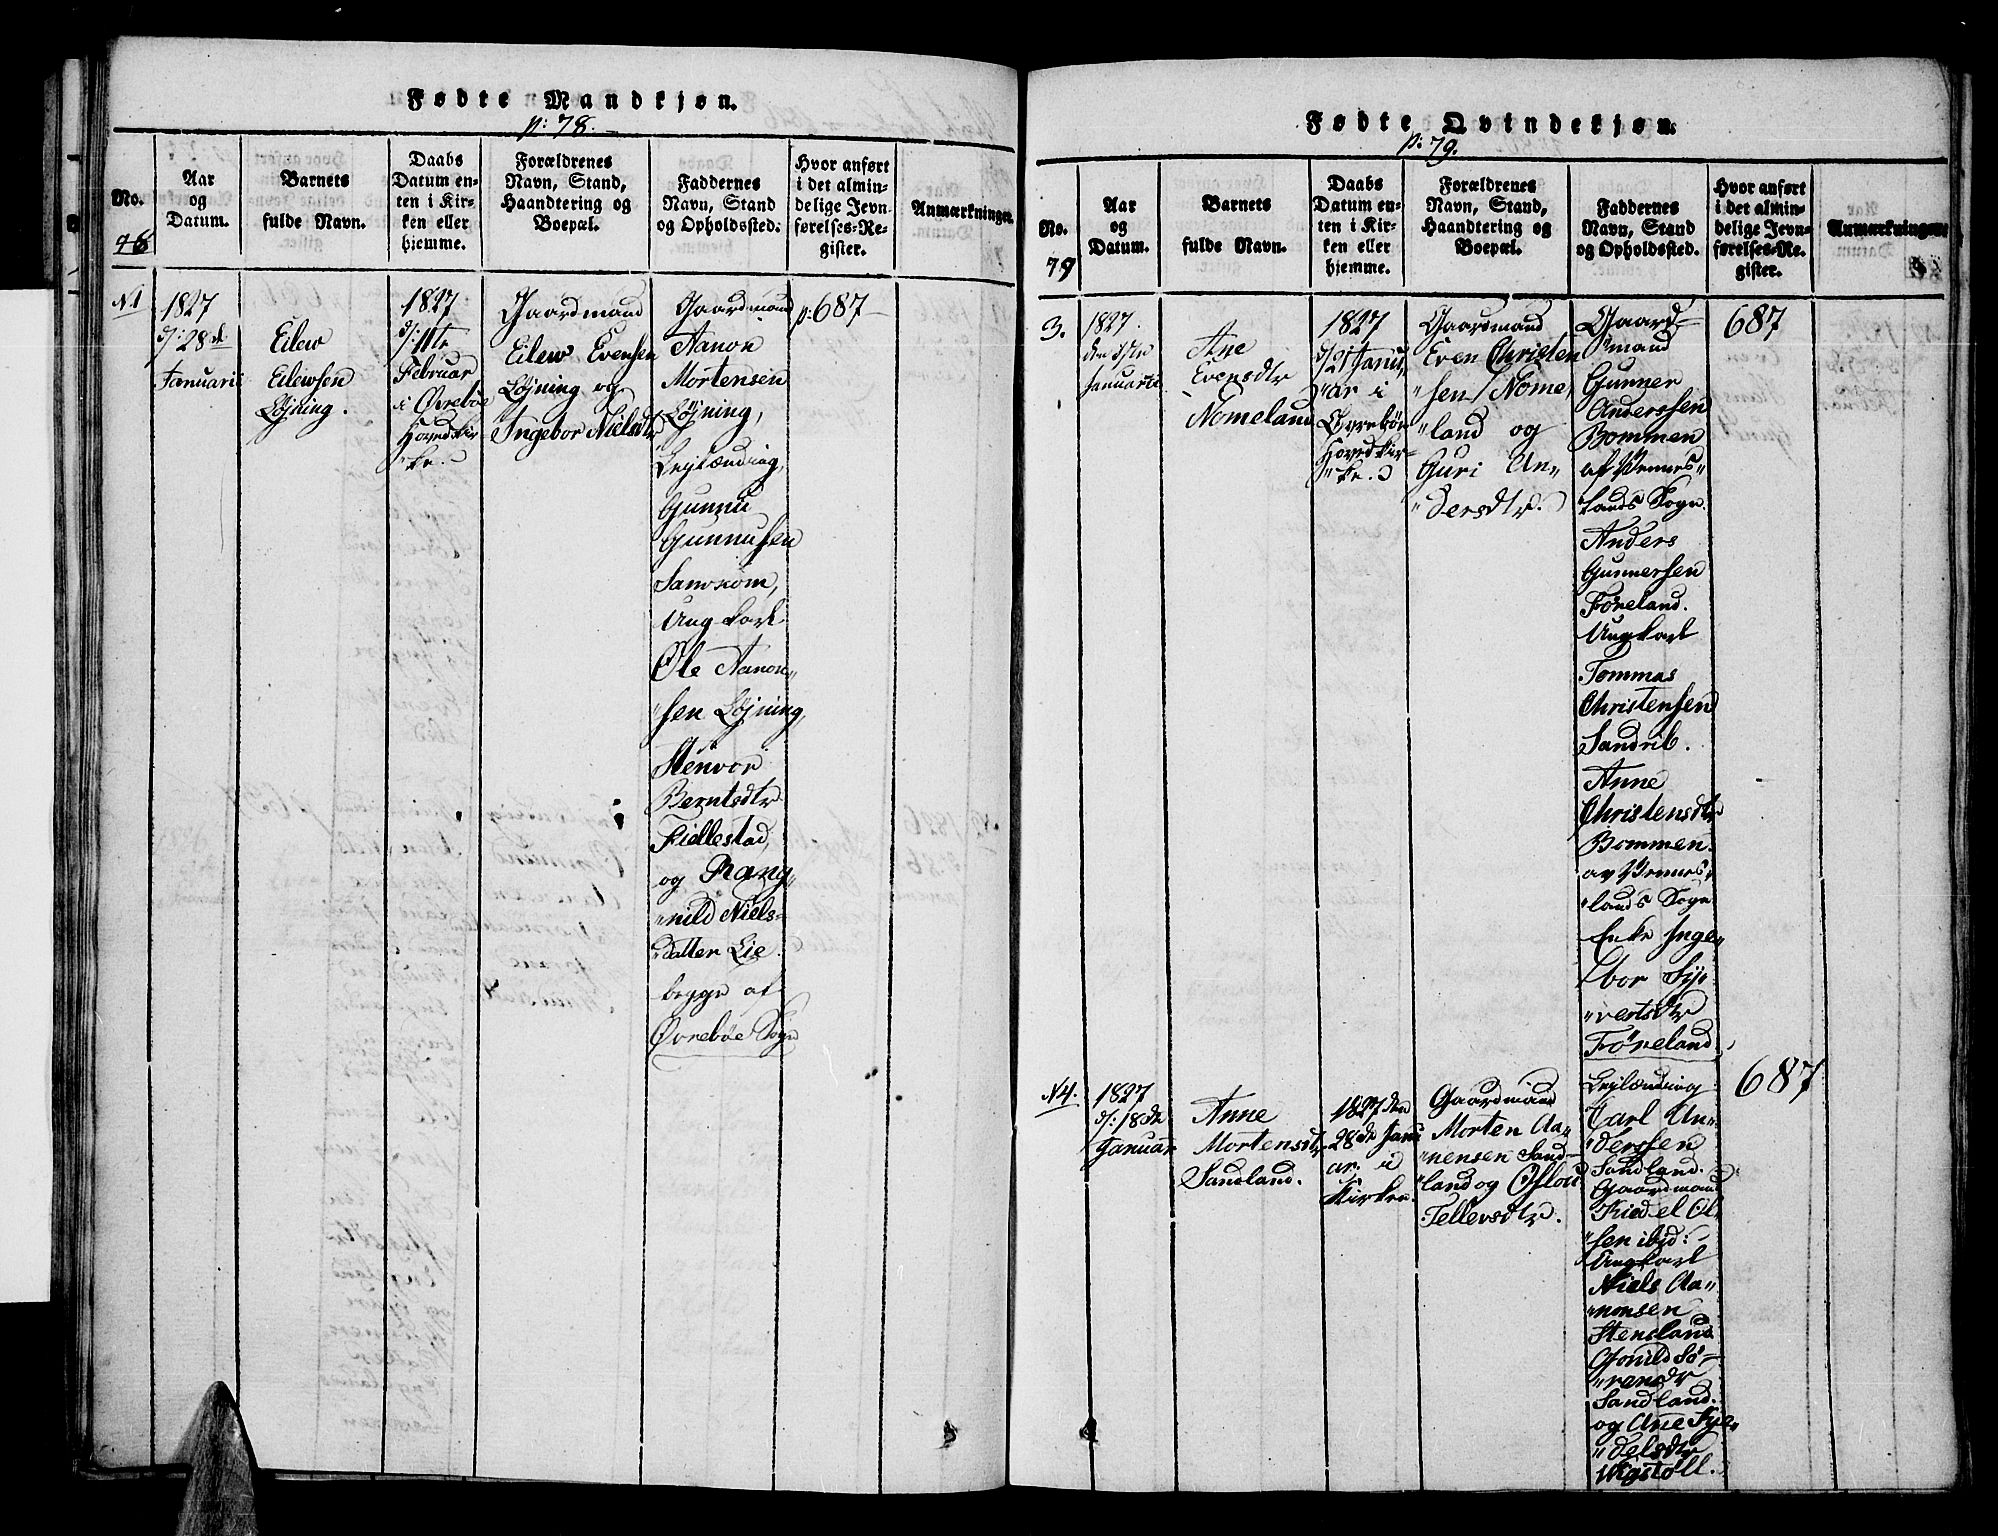 Fødte Mandkjøn.
p: 78.
No.
78
Aar
og
Datum.
Barnets
fulde Navn.
Daabs
Datum en-
ten i Kir-
ken eller
hjemme.
Forældrenes
Navn, Stand,
Haandtering og
Boepæl.
Faddernes
Navn, Stand
og Opholdssted.
Hvor anført
i det almin-
delige Jevn-
førelses-Re-
gister.
Anmærkninger.
N1
1827
d: 28de
Januarii
Eilew
Eilewsen
Løjning.
1827
d: 11te
Februar
i Øvrebøe
Hovedkir-
"ke.
Gaardmand
Eilew Evensen
Løjning og
Ingebor Nielsdtr
Gaardmand
Aanon
Mortensen
Løjning,
Lejlænding,
Gunnu
Gunnusen
Ungkarl
Ole Aanon-
"sen Løjning,
Stenvor
Berntsdtr
Fidlestad,
og Rang-
"nild Niels-
Datter Lie
begge af
Øvrebøe Sogn
p: 687
Fødte Qvindekjøn.
p: 79.
No.
79
Aar
og
Datum.
Barnets
fulde Navn.
Daabs
Datum en-
ten i Kir-
ken eller
hjemme.
Forældrenes
Navn, Stand,
Haandtering og
Boepæl.
Faddernes
Navn, Stand
og Opholdssted.
Hvor anført
i det almin-
delige Jevn-
førelses-Re-
gister.
Anmærkninger.
3.
1827.
den 1ste
Januarii
Ane
Evensdtr
Nomeland
1827
d/21 Janu,
"ar i
Øvrebøe
Hovedkir-
"ke.
Gaardmand
Even Christen
"sen Nome,
"land og
Guri An-
"dersdtr.
Gaard-
"mand
Gunner
Anderssen
Bommen
af Vennes"
lands Sogn.
Anders
Gunnersen
Føreland.
Ungkarl
Tommas
Christensen
Sandrib.
Anne
Christensdtr
Bommen.
av Vennes,
"lands Sogn
Enke Inge-
"bor Sy-
"vertsdtr
Føreland.
687
N4.
1827
d: 18de
Januar
Anne
Mortensdtr
Sandland.
1827 den
28de Janu
ar. i
Kirken.
Gaardmand
Morten Aa-
"nensen Sand-
"land og Oslou
Tellevsdtr.
Lejlænding
Carl An-
"derssen
Sandland.
Gaardmand
Fiedel Ol-
"sen ibid:
Ungkarl
Niels Aa-
"nonsen
Stensland
Gonild Sø-
"rensdtr
Sandland.
og Ane Sye-
"delsdtr
Ugstøll.
687